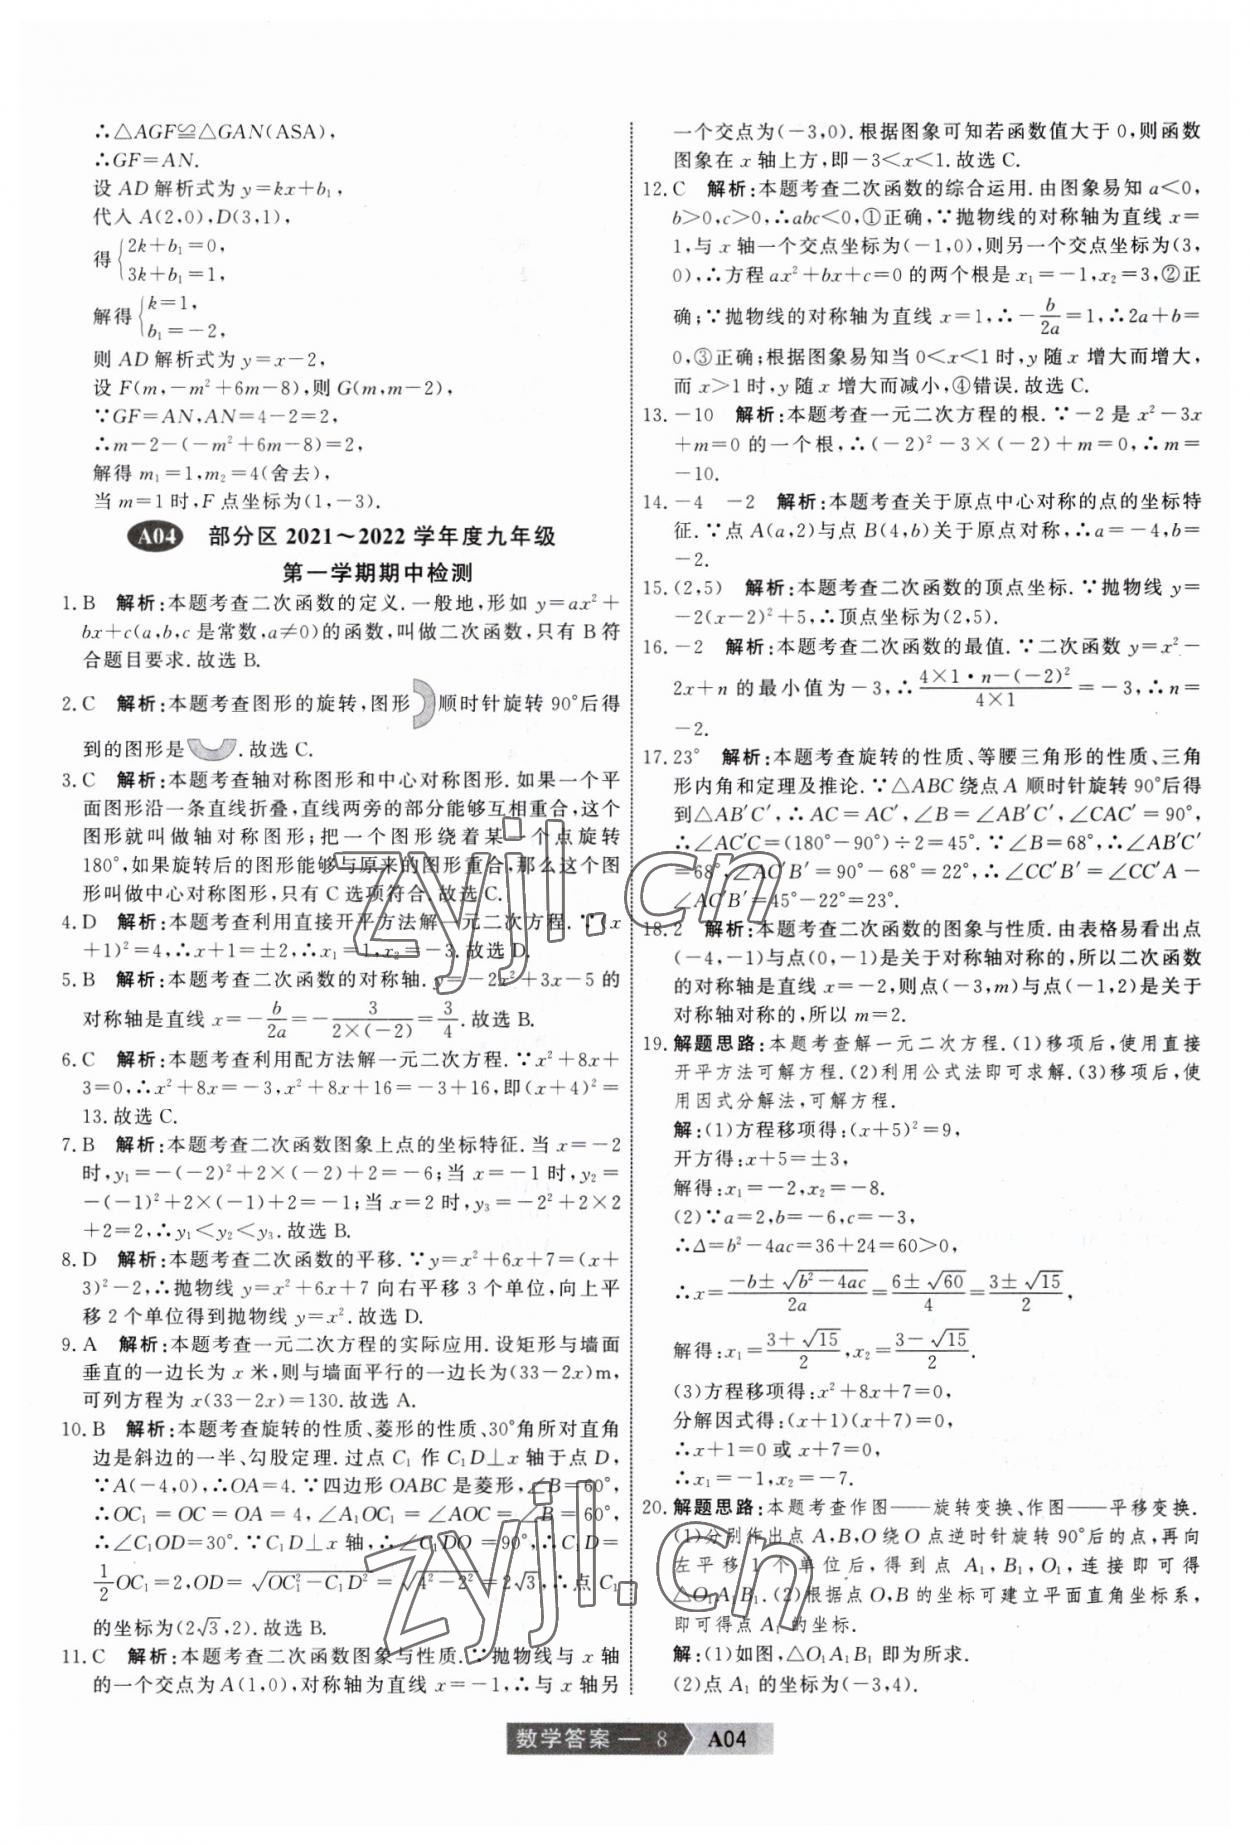 ∴△AGF≌△GAN(ASA),
∴GF=AN.
设 AD 解析式为 y=kx+b₁,
代入 A(2,0),D(3,1),
得{2k+b₁=0,
3k+b₁=1,
解得{k=1,
b₁=-2,
则 AD 解析式为 y=x-2,
设 F(m,-m²+6m-8),则 G(m,m-2),
∵GF=AN,AN=4-2=2,
∴m-2-(-m²+6m-8)=2,
解得 m₁=1,m₂=4(舍去),
当 m=1 时,F 点坐标为(1,-3).
A04 部分区 2021~2022 学年度九年级
第一学期期中检测
1. B 解析:本题考查二次函数的定义.一般地,形如 y=ax²+
bx+c(a,b,c 是常数,a≠0)的函数,叫做二次函数,只有 B 符
合题目要求.故选 B.
2. C 解析:本题考查图形的旋转,图形 顺时针旋转 90°后得
到的图形是 .故选 C.
3. C 解析:本题考查轴对称图形和中心对称图形.如果一个平
面图形沿一条直线折叠,直线两旁的部分能够互相重合,这个
图形就叫做轴对称图形;把一个图形绕着某一个点旋转
180°,如果旋转后的图形能够与原来的图形重合,那么这个图
形叫做中心对称图形,只有 C 选项符合.故选 C.
4. D 解析:本题考查利用直接开平方法解一元二次方程.∵(x
+1)²=4,∴x+1=±2,∴x₁=1,x₂=-3.故选 D.
5. B 解析:本题考查二次函数的对称轴.y=-2x²+3x-5 的
对称轴是直线 x=-b/2a=-3/(2×(-2))=3/4.故选 B.
6. C 解析:本题考查利用配方法解一元二次方程.∵x²+8x+
3=0,∴x²+8x=-3,x²+8x+16=-3+16,即(x+4)²=
13.故选 C.
7. B 解析:本题考查二次函数图象上点的坐标特征.当 x=-2
时,y₁=-(-2)²+2×(-2)+2=-6;当 x=-1 时,y₂=
-(-1)²+2×(-1)+2=-1;当 x=2 时,y₃=-2²+2×2
+2=2,∴y₁<y₂<y₃.故选 B.
8. D 解析:本题考查二次函数的平移.∵y=x²+6x+7=(x+
3)²-2,∴抛物线 y=x²+6x+7 向右平移 3 个单位,向上平
移 2 个单位得到抛物线 y=x².故选 D.
9. A 解析:本题考查一元二次方程的实际应用.设矩形与墙面
垂直的一边长为 x 米,则与墙面平行的一边长为(33-2x)m,
可列方程为 x(33-2x)=130.故选 A.
10. B 解析:本题考查旋转的性质、菱形的性质、30°角所对直角
边是斜边的一半、勾股定理.过点 C₁ 作 C₁D⊥x 轴于点 D,
∵A(-4,0),∴OA=4.∵四边形 OABC 是菱形,∠B=60°,
∴OC₁=OC=OA=4,∠A₁OC₁=∠AOC=∠B=60°,
∴∠C₁OD=30°.∵C₁D⊥x 轴,∴∠C₁DO=90°,∴C₁D=
1/2OC₁=2,OD=√(OC₁²-C₁D²)=√(4²-2²)=2√3,∴点 C₁
的坐标为(2√3,2).故选 B.
11. C 解析:本题考查二次函数图象与性质.∵抛物线与 x 轴
的一个交点为 A(1,0),对称轴为直线 x=-1,∴与 x 轴另
一个交点为(-3,0).根据图象可知若函数值大于 0,则函数
图象在 x 轴上方,即-3<x<1.故选 C.
12. C 解析:本题考查二次函数的综合运用.由图象易知 a<0,
b>0,c>0,∴abc<0,①正确,∵抛物线的对称轴为直线 x=
1,与 x 轴一个交点坐标为(-1,0),则另一个交点坐标为(3,
0),∴方程 ax²+bx+c=0 的两个根是 x₁=-1,x₂=3,②正
确;∵抛物线的对称轴为直线 x=1,∴-b/2a=1,∴2a+b=
0,③正确;根据图象易知当 0<x<1 时,y 随 x 增大而增大,
而 x>1 时,y 随 x 增大而减小,④错误.故选 C.
13. -10 解析:本题考查一元二次方程的根.∵-2 是 x²-3x
+m=0 的一个根,∴(-2)²-3×(-2)+m=0,∴m=
-10.
14. -4 -2 解析:本题考查关于原点中心对称的点的坐标特
征.∵点 A(a,2)与点 B(4,b)关于原点对称,∴a=-4,b=
-2.
15. (2,5) 解析:本题考查二次函数的顶点坐标.∵抛物线 y=
-2(x-2)²+5,∴顶点坐标为(2,5).
16. -2 解析:本题考查二次函数的最值.∵二次函数 y=x²-
2x+n 的最小值为-3,∴(4×1·n-(-2)²)/(4×1)=-3,∴n=
-2.
17. 23° 解析:本题考查旋转的性质、等腰三角形的性质、三角
形内角和定理及推论.∵△ABC 绕点 A 顺时针旋转 90°后得
到△AB′C′,∴AC=AC′,∠B=∠AB′C′,∠CAC′=90°,
∴∠AC′C=(180°-90°)÷2=45°.∵∠B=68°,∴∠AB′C′
=68°,∠AC′B′=90°-68°=22°,∴∠CC′B′=∠CC′A-
∠AC′B′=45°-22°=23°.
18. 2 解析:本题考查二次函数的图象与性质.由表格易看出点
(-4,-1)与点(0,-1)是关于对称轴对称的,所以二次函数
的对称轴是直线 x=-2,则点(-3,m)与点(-1,2)是关于
对称轴对称的,所以 m=2.
19. 解题思路:本题考查解一元二次方程.(1)移项后,使用直接
开平方法可解方程.(2)利用公式法即可求解.(3)移项后,使
用因式分解法,可解方程.
解:(1)方程移项得:(x+5)²=9,
开方得:x+5=±3,
解得:x₁=-2,x₂=-8.
(2)∵a=2,b=-6,c=-3,
∴Δ=b²-4ac=36+24=60>0,
∴x=(-b±√(b²-4ac))/2a=(6±√60)/4=(3±√15)/2,
解得:x₁=(3+√15)/2,x₂=(3-√15)/2.
(3)方程移项得:x²+8x+7=0,
分解因式得:(x+1)(x+7)=0,
∴x+1=0 或 x+7=0,
∴x₁=-1,x₂=-7.
20. 解题思路:本题考查作图——旋转变换、作图——平移变换.
(1)分别作出点 A,B,O 绕 O 点逆时针旋转 90°后的点,再向
左平移 1 个单位后,得到点 A₁,B₁,O₁,连接即可得
△O₁A₁B₁.(2)根据点 O,B 的坐标可建立平面直角坐标系,
即可得点 A₁ 的坐标.
解:(1)如图,△O₁A₁B₁ 即为所求.
(2)点 A₁ 的坐标为(-3,4).
数学答案 — 8 A04
zyjl.cn
zyjl.cn